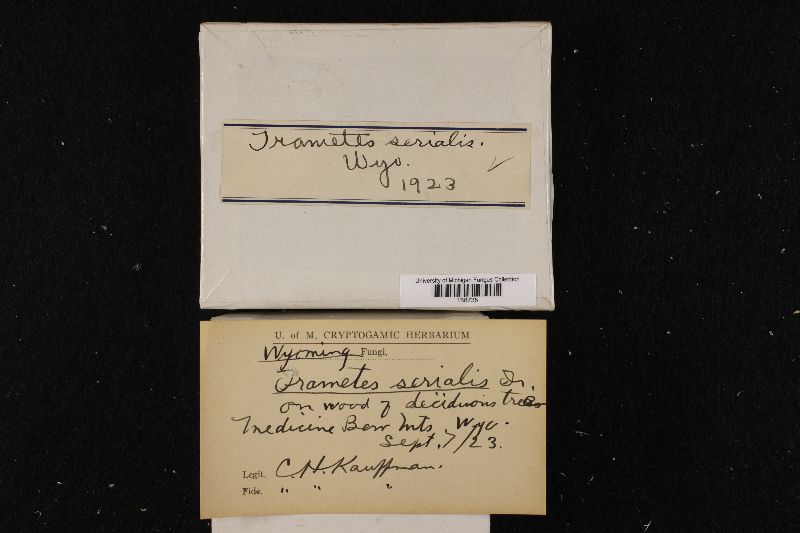 Trametes serialis.
Wyo.
1923
University of Michigan Fungus Collection
U. of M. CRYPTOGAMIC HERBARIUM
Wyoming Fungi.
Trametes serialis Fr.
on wood of deciduous trees
Medicine Bow Mts, Wyo.
Sept. 7/23.
Legit. C.H. Kauffman.
Fide. " " "